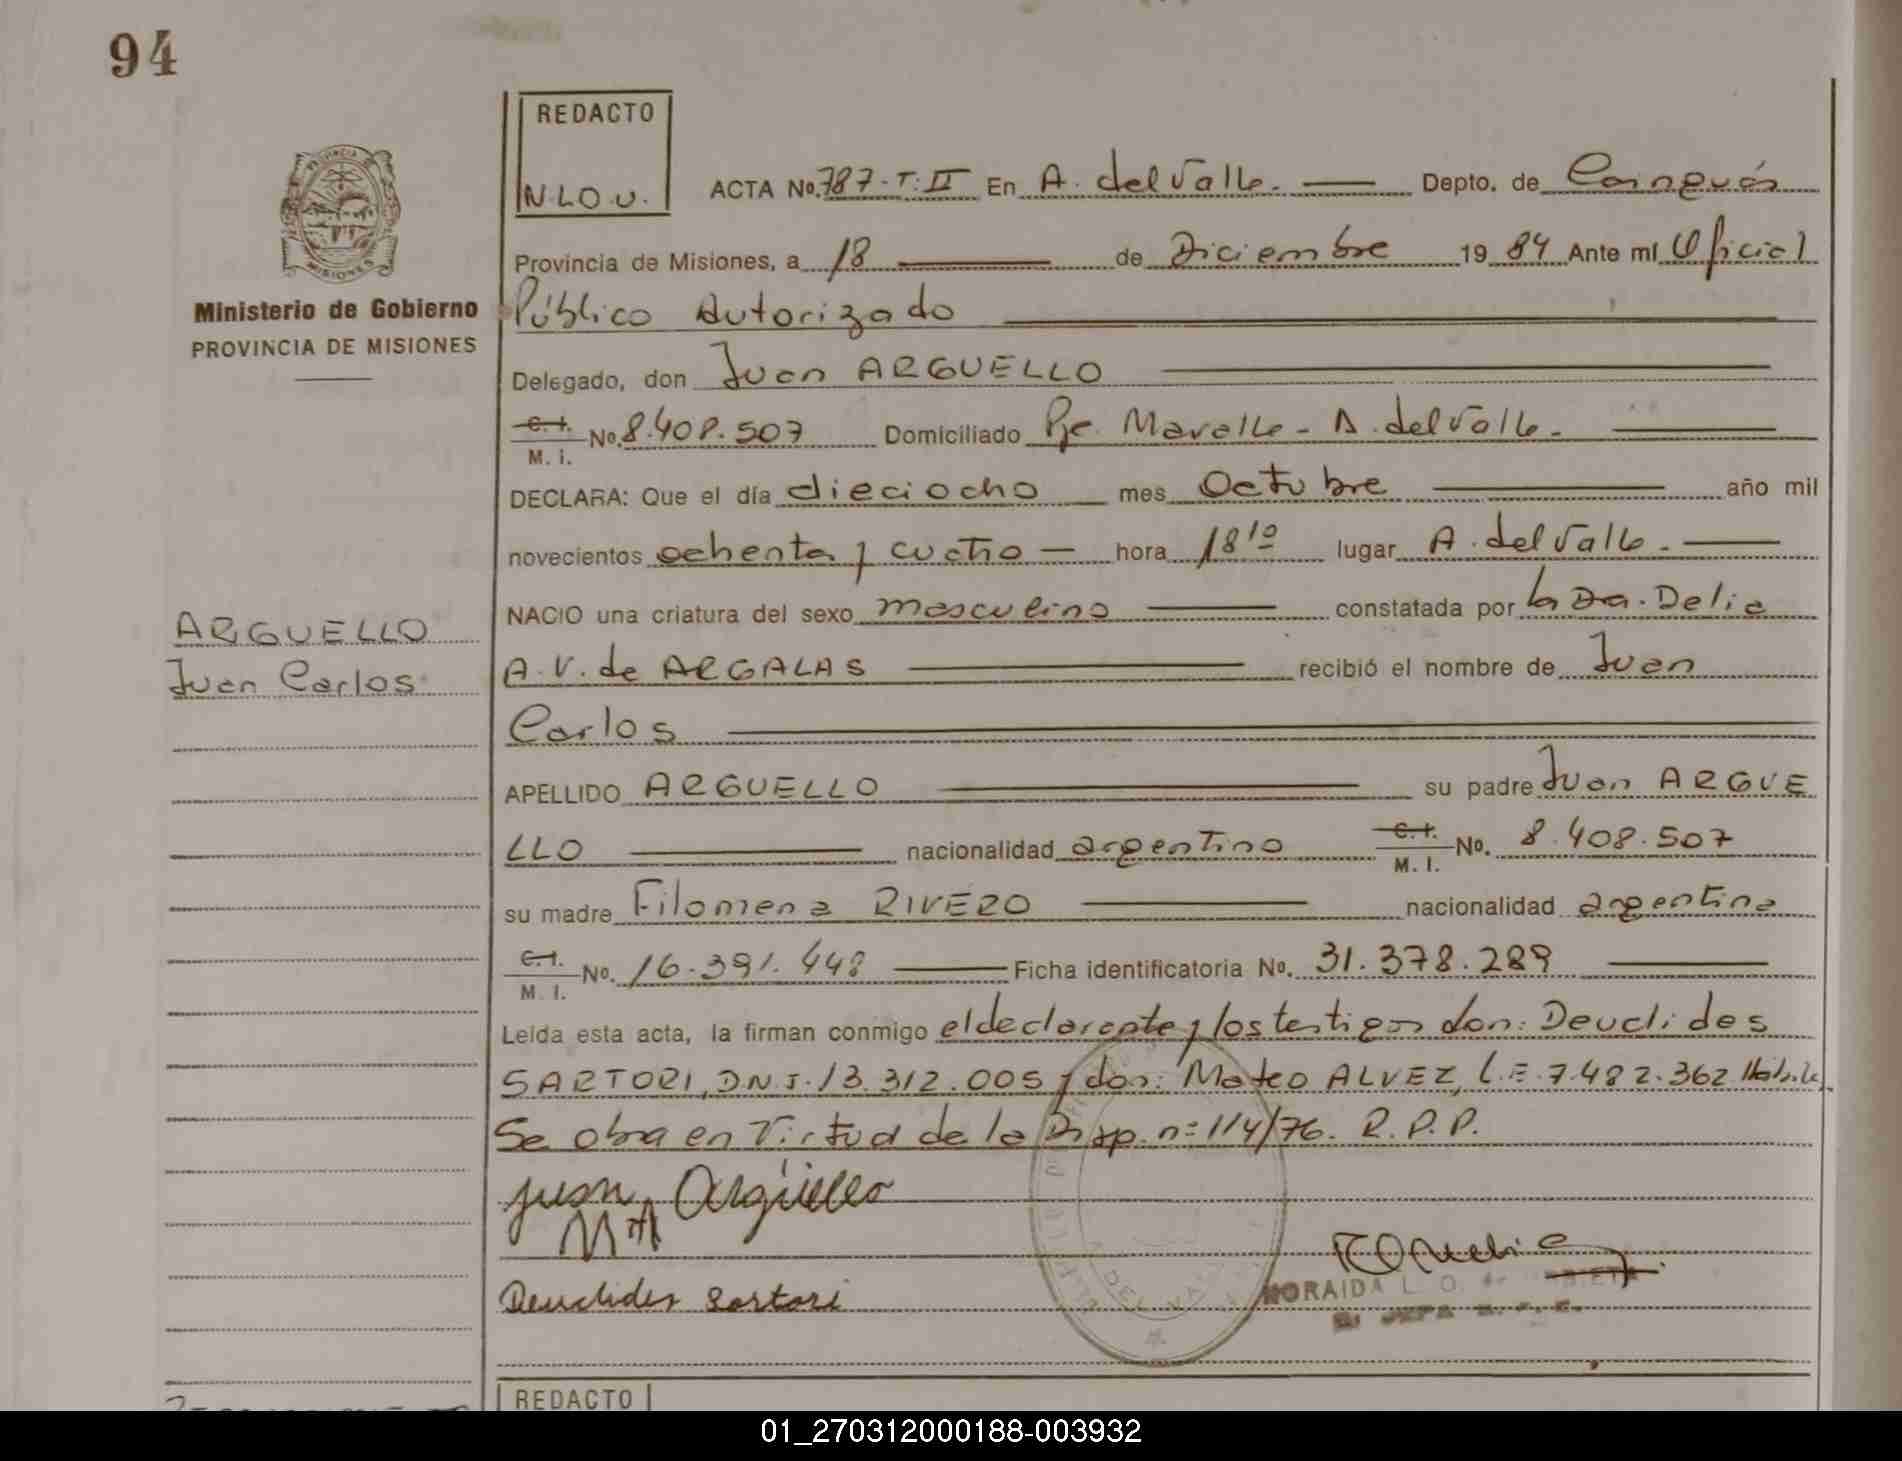 94
REDACTO
N.L.O.V.
PROVINCIA DE
MISIONES
Ministerio de Gobierno
PROVINCIA DE MISIONES
ACTA No. 787-T:II En A. del Valle. Depto. de Cainguás
Provincia de Misiones, a 18 de Diciembre 19 84 Ante mí Oficial
Público Autorizado
Delegado, don Juan ARGUELLO
C.I. M. I. No. 8.408.507 Domiciliado Pje. Mavalle - A. del Valle.
DECLARA: Que el día dieciocho mes Octubre año mil
novecientos ochenta y cuatro hora 18 10 lugar A. del Valle.
NACIO una criatura del sexo masculino constatada por la Da. Delia
A.V. de ARGALAS recibió el nombre de Juan
Carlos
ARGUELLO
Juan Carlos
APELLIDO ARGUELLO su padre Juan ARGUE
LLO nacionalidad argentino C.I. M. I. No. 8.408.507
su madre Filomena RIVERO nacionalidad argentina
C.I. M. I. No. 16.391.448 Ficha identificatoria No. 31.378.289
Leída esta acta, la firman conmigo el declarante y los testigos don: Deuclides
SARTORI, D.N.I. 13.312.005 y don: Mateo ALVEZ, L.E. 7.482.362 Hábiles
Se obra en Virtud de la Disp. nº 114/76. R.P.P.
Juan Argüello
MA
Deuclides Sartori
NORAIDA L. O.
DEL VALLE
REDACTO
01_270312000188-003932